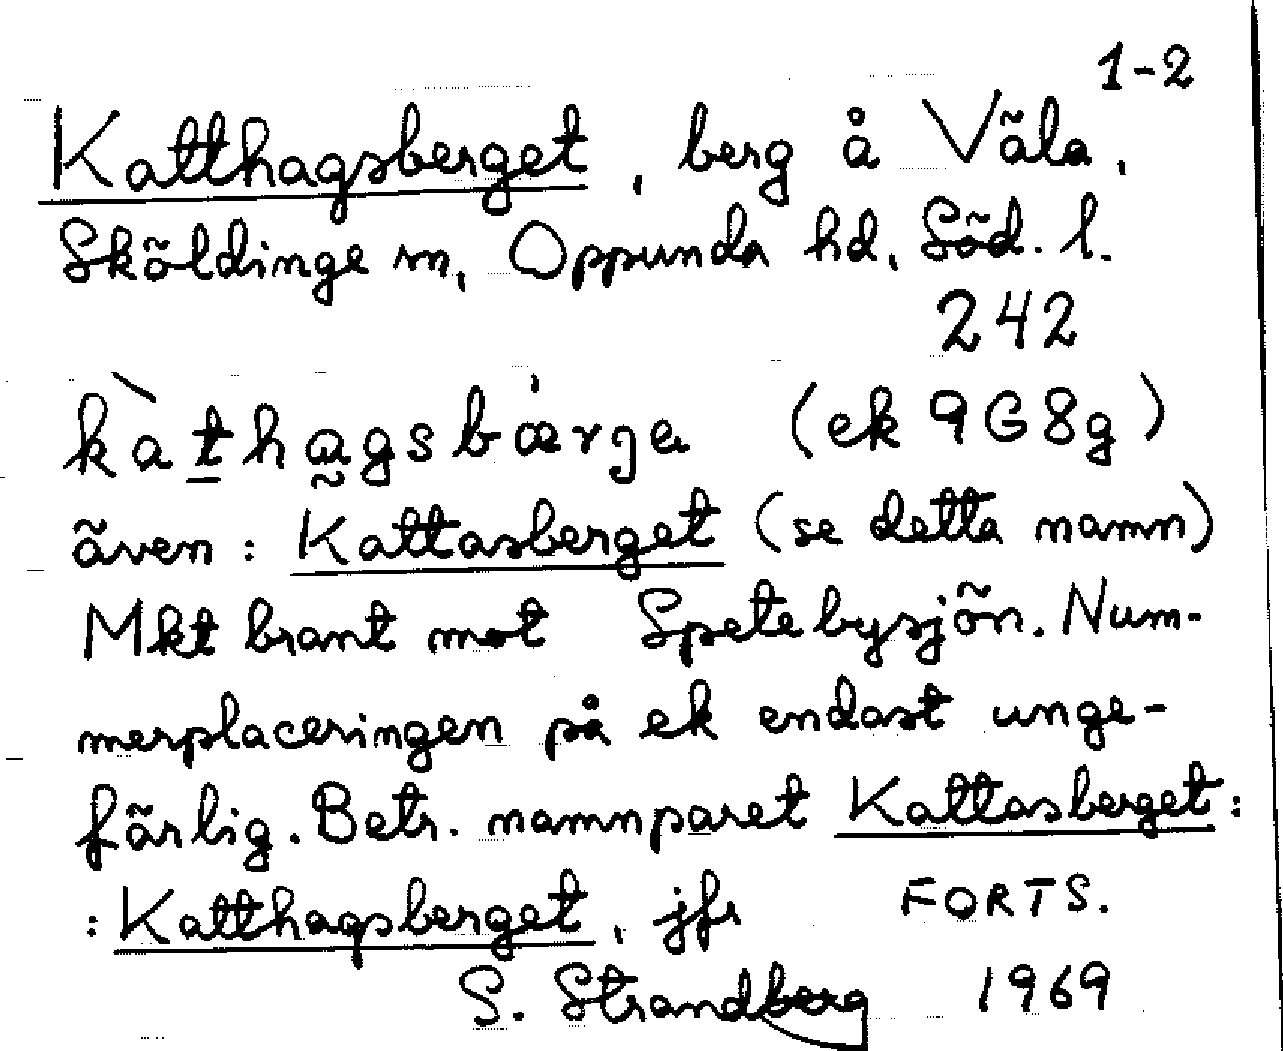 1-2
Katthagsberget, berg å Väla,
Sköldinge sn, Oppunda hd, Söd. l.
242
kàthagsbærje (ek 9G8g)
även: Kattasberget (se detta namn)
Mkt brant mot Spetebysjön. Num-
merplaceringen på ek endast unge-
färlig. Betr. namnparet Kattasberget:
: Katthagsberget, jfr FORTS.
S. Strandberg 1969